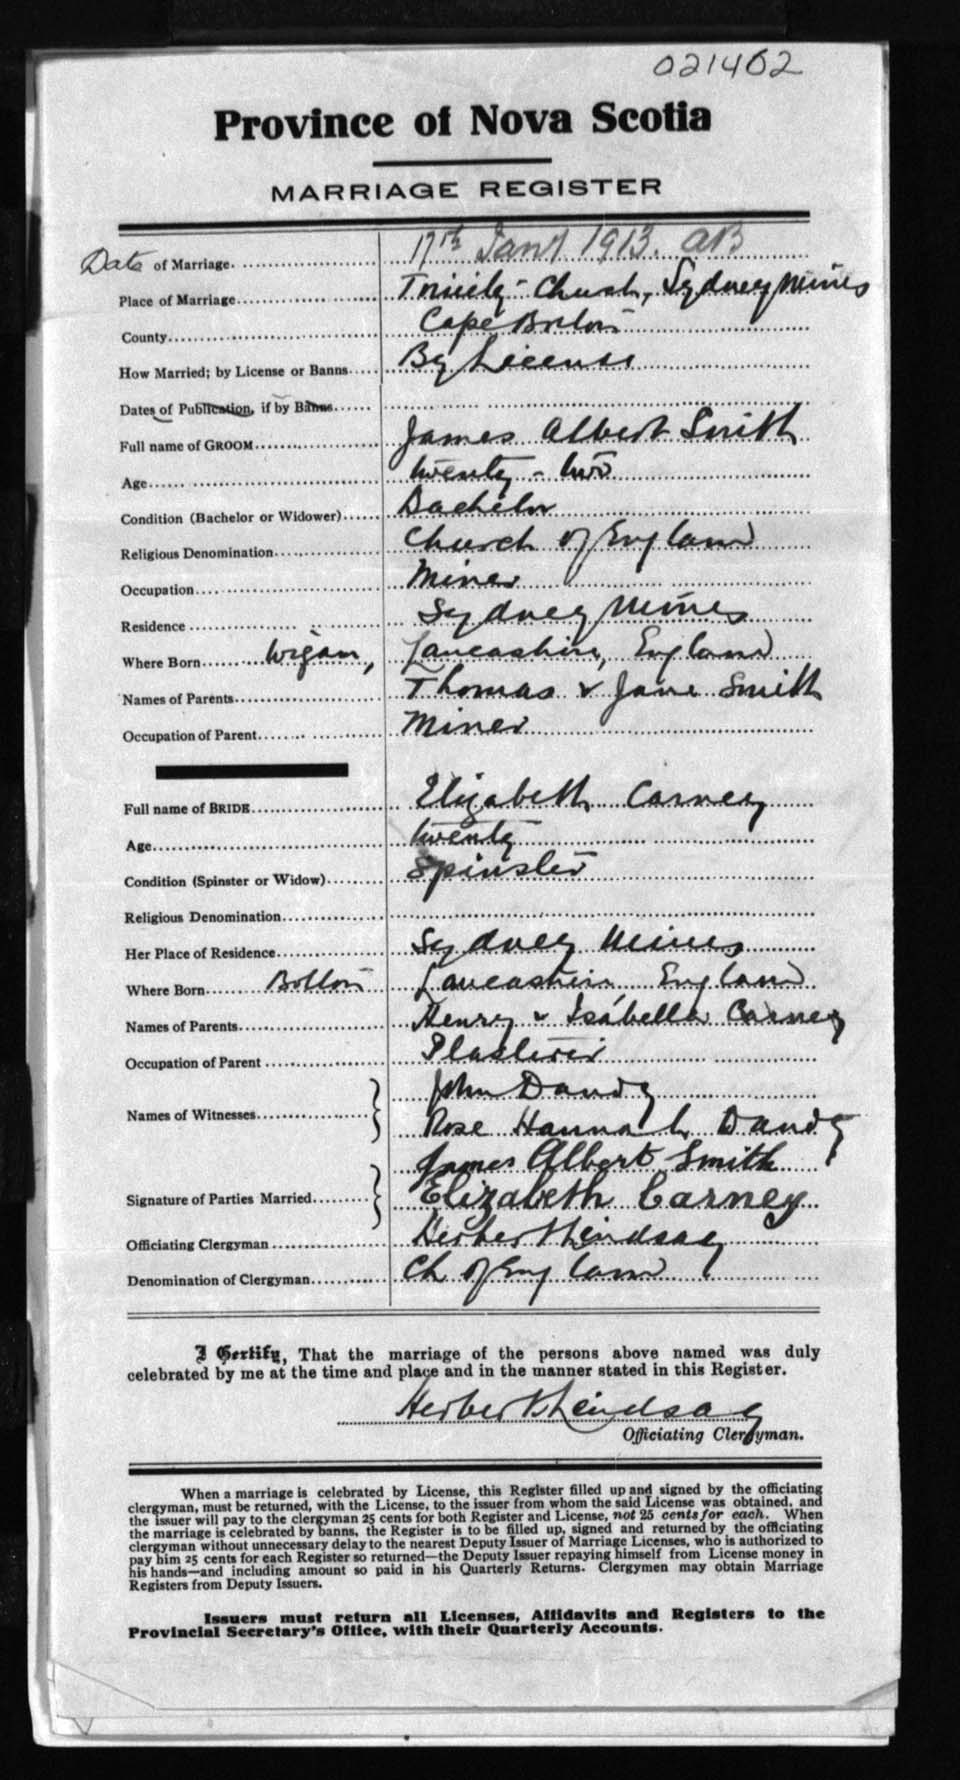 021402
Province of Nova Scotia
MARRIAGE REGISTER
Date of Marriage 17th Jany 1913. AB
Place of Marriage Trinity Church, Sydney Mines
County Cape Breton
How Married; by License or Banns By License
Dates of Publication, if by Banns
Full name of GROOM James Albert Smith
Age twenty-two
Condition (Bachelor or Widower) Bachelor
Religious Denomination Church of England
Occupation Miner
Residence Sydney Mines
Where Born Wigan, Lancashire, England
Names of Parents Thomas & Jane Smith
Occupation of Parent Miner
Full name of BRIDE Elizabeth Carney
Age twenty
Condition (Spinster or Widow) Spinster
Religious Denomination
Her Place of Residence Sydney Mines
Where Born Bolton Lancashire England
Names of Parents Henry & Isabella Carney
Occupation of Parent Plasterer
Names of Witnesses John Dandy
Rose Hannah Dandy
Signature of Parties Married James Albert Smith
Elizabeth Carney
Officiating Clergyman Herbert Lindsay
Denomination of Clergyman Ch of England
I Certify, That the marriage of the persons above named was duly
celebrated by me at the time and place and in the manner stated in this Register.
Herbert Lindsay
Officiating Clergyman.
When a marriage is celebrated by License, this Register filled up and signed by the officiating
clergyman, must be returned, with the License, to the issuer from whom the said License was obtained, and
the issuer will pay to the clergyman 25 cents for both Register and License, not 25 cents for each. When
the marriage is celebrated by banns, the Register is to be filled up, signed and returned by the officiating
clergyman without unnecessary delay to the nearest Deputy Issuer of Marriage Licenses, who is authorized to
pay him 25 cents for each Register so returned—the Deputy Issuer repaying himself from License money in
his hands—and including amount so paid in his Quarterly Returns. Clergymen may obtain Marriage
Registers from Deputy Issuers.
Issuers must return all Licenses, Affidavits and Registers to the
Provincial Secretary's Office, with their Quarterly Accounts.